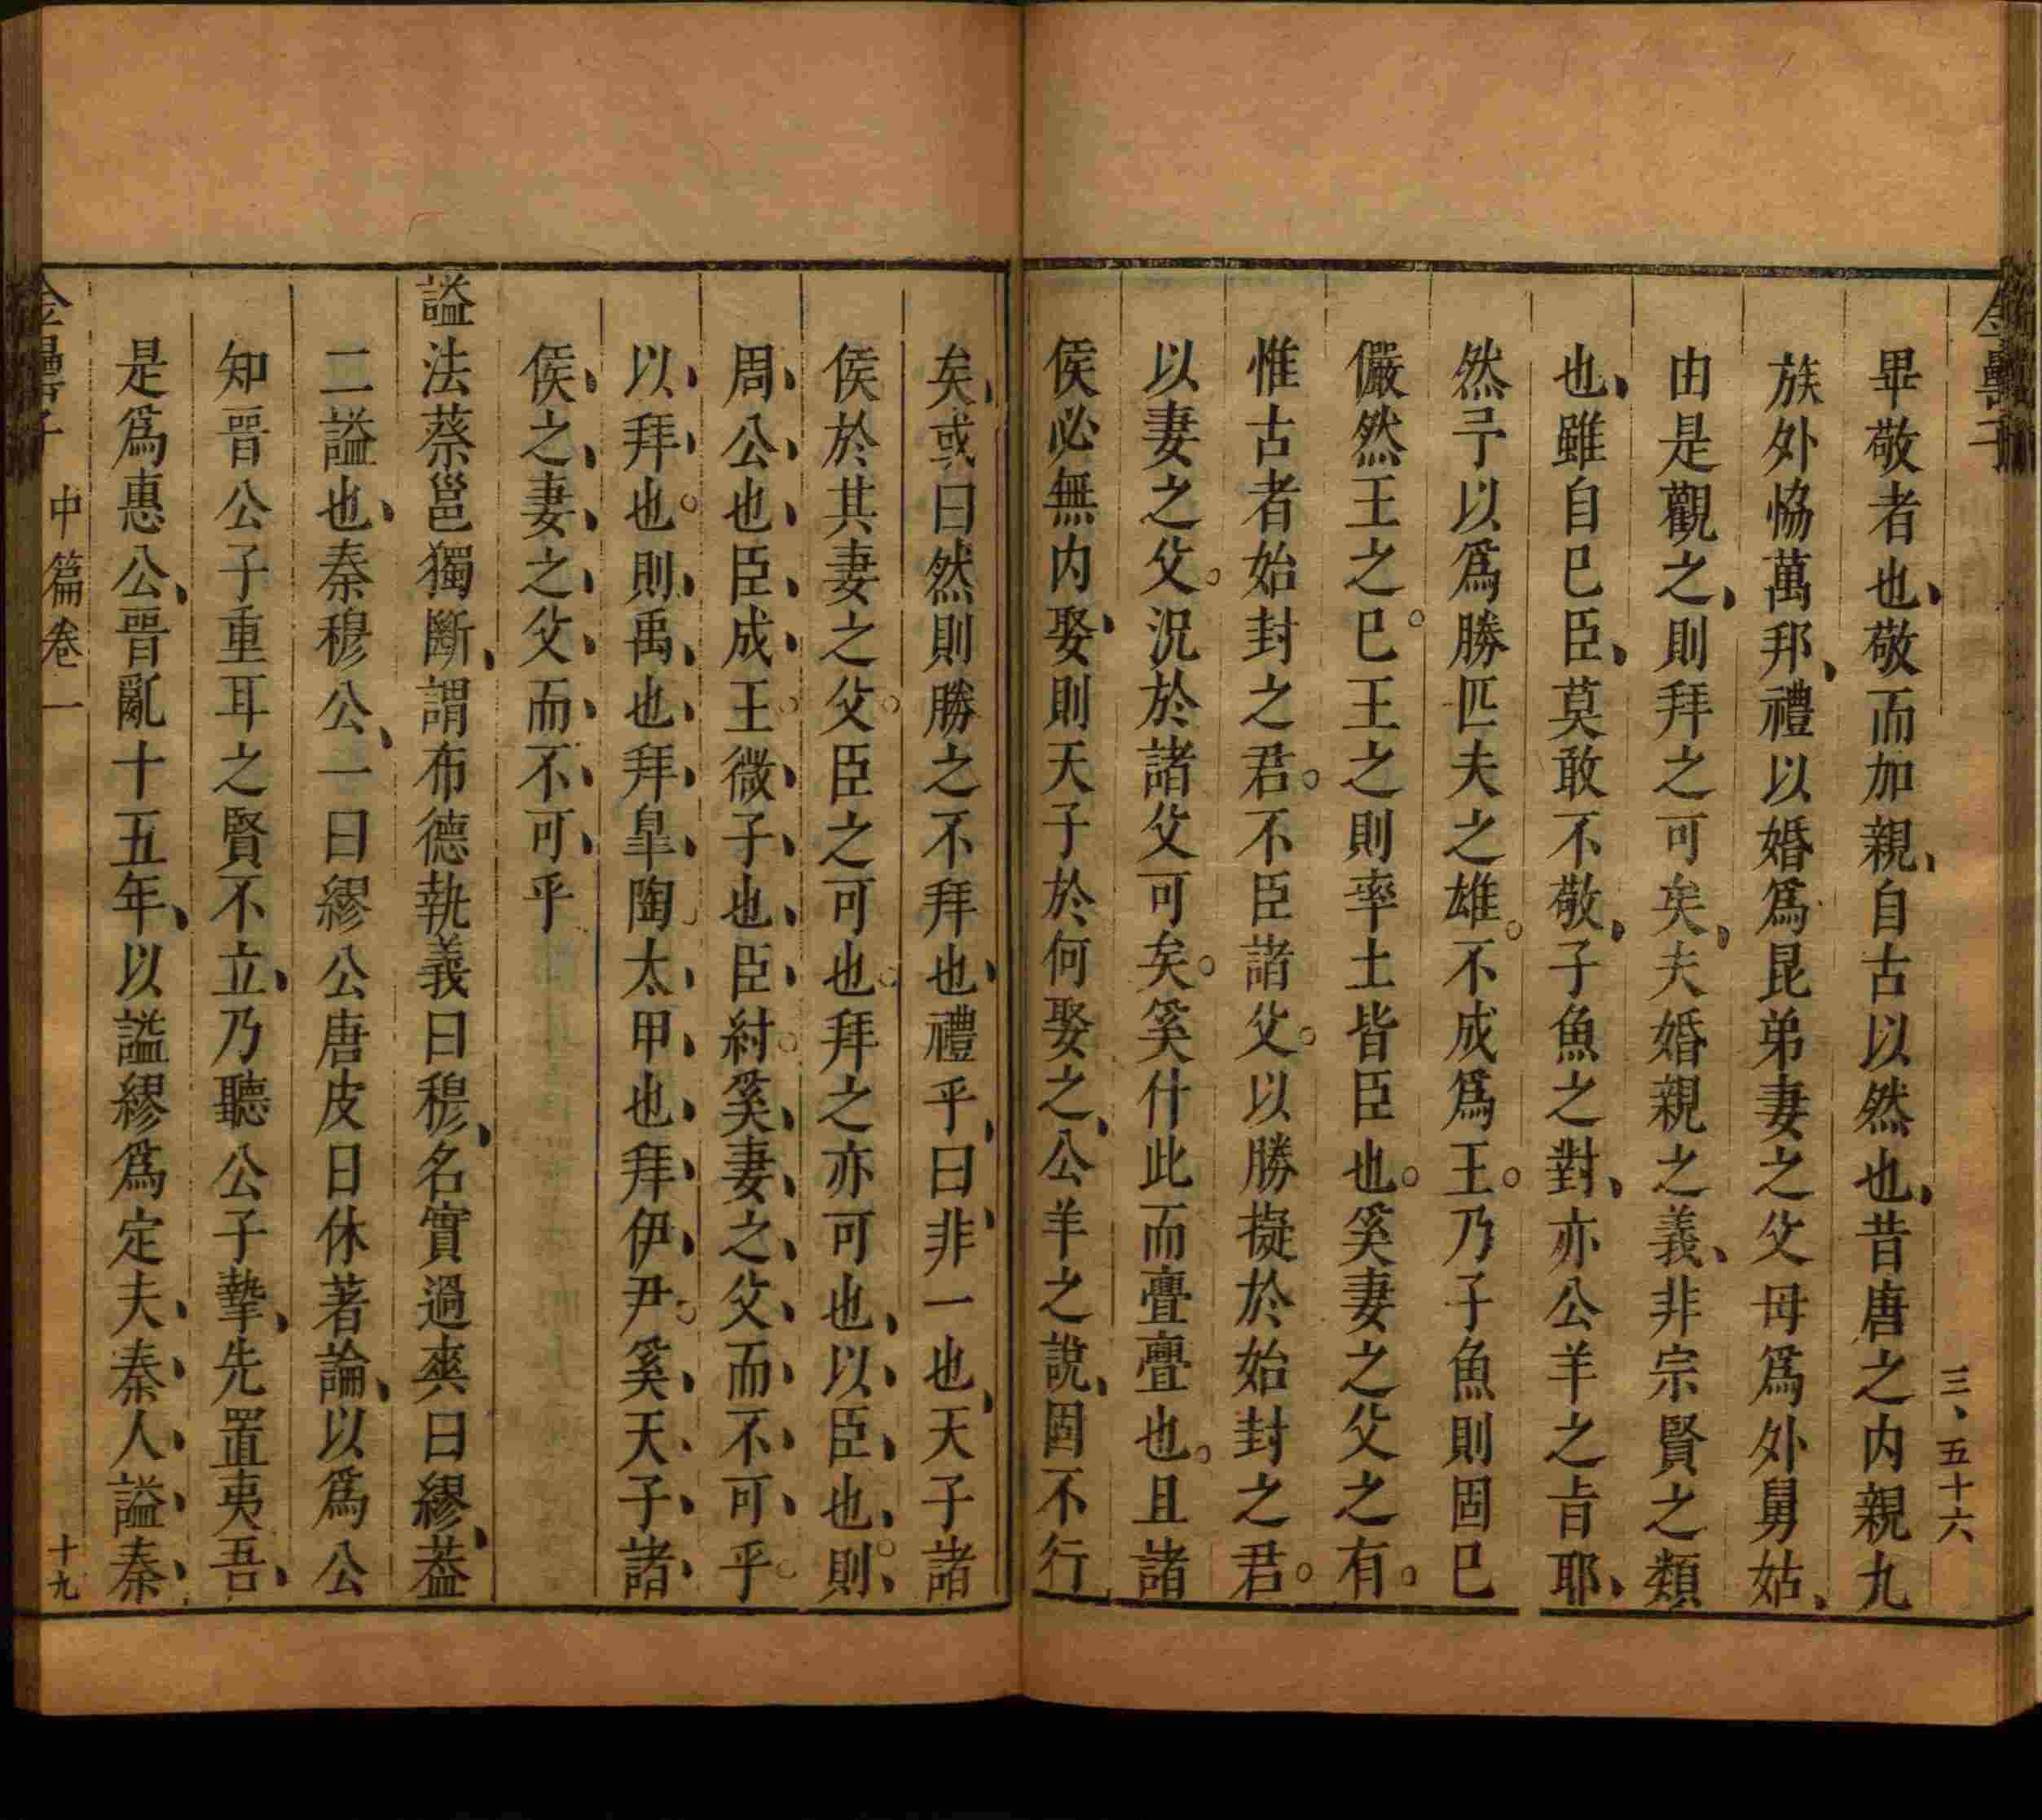 三、五十六
畢敬者也、敬而加親、自古以然也、昔唐之内親九
族外恊萬邦、禮以婚爲昆弟妻之父母爲外舅姑、
由是觀之、則拜之可矣、夫婚親之義、非宗賢之類
也、雖自巳臣、莫敢不敬、子魚之對、亦公羊之旨耶、
然予以爲勝匹夫之雄。不成爲王。乃子魚則固巳
儼然王之巳。王之則率土皆臣也。奚妻之父之有。
惟古者始封之君。不臣諸父。以勝擬於始封之君。
以妻之父。況於諸父可矣。奚什此而亹亹也。且諸
侯必無内娶、則天子於何娶之、公羊之說、固不行
矣、或曰然則勝之不拜也、禮乎、曰、非一也、天子諸
侯於其妻之父。臣之可也。拜之亦可也、以臣也、則
周公也臣成王。微子也臣紂。奚妻之父而不可乎。
以拜也。則禹也拜臯陶、太甲也拜伊尹。奚天子諸
侯之妻之父而不可乎
謚法蔡邕獨斷、謂布德執義曰穆、名實過爽曰繆、葢
二謚也、秦穆公、一曰繆公唐皮日休著論、以爲公
知晉公子重耳之賢不立、乃聽公子摯、先置夷吾、
是爲惠公、晉亂十五年、以謚繆爲定夫、秦人謚秦
金罍子
中篇卷一
十九